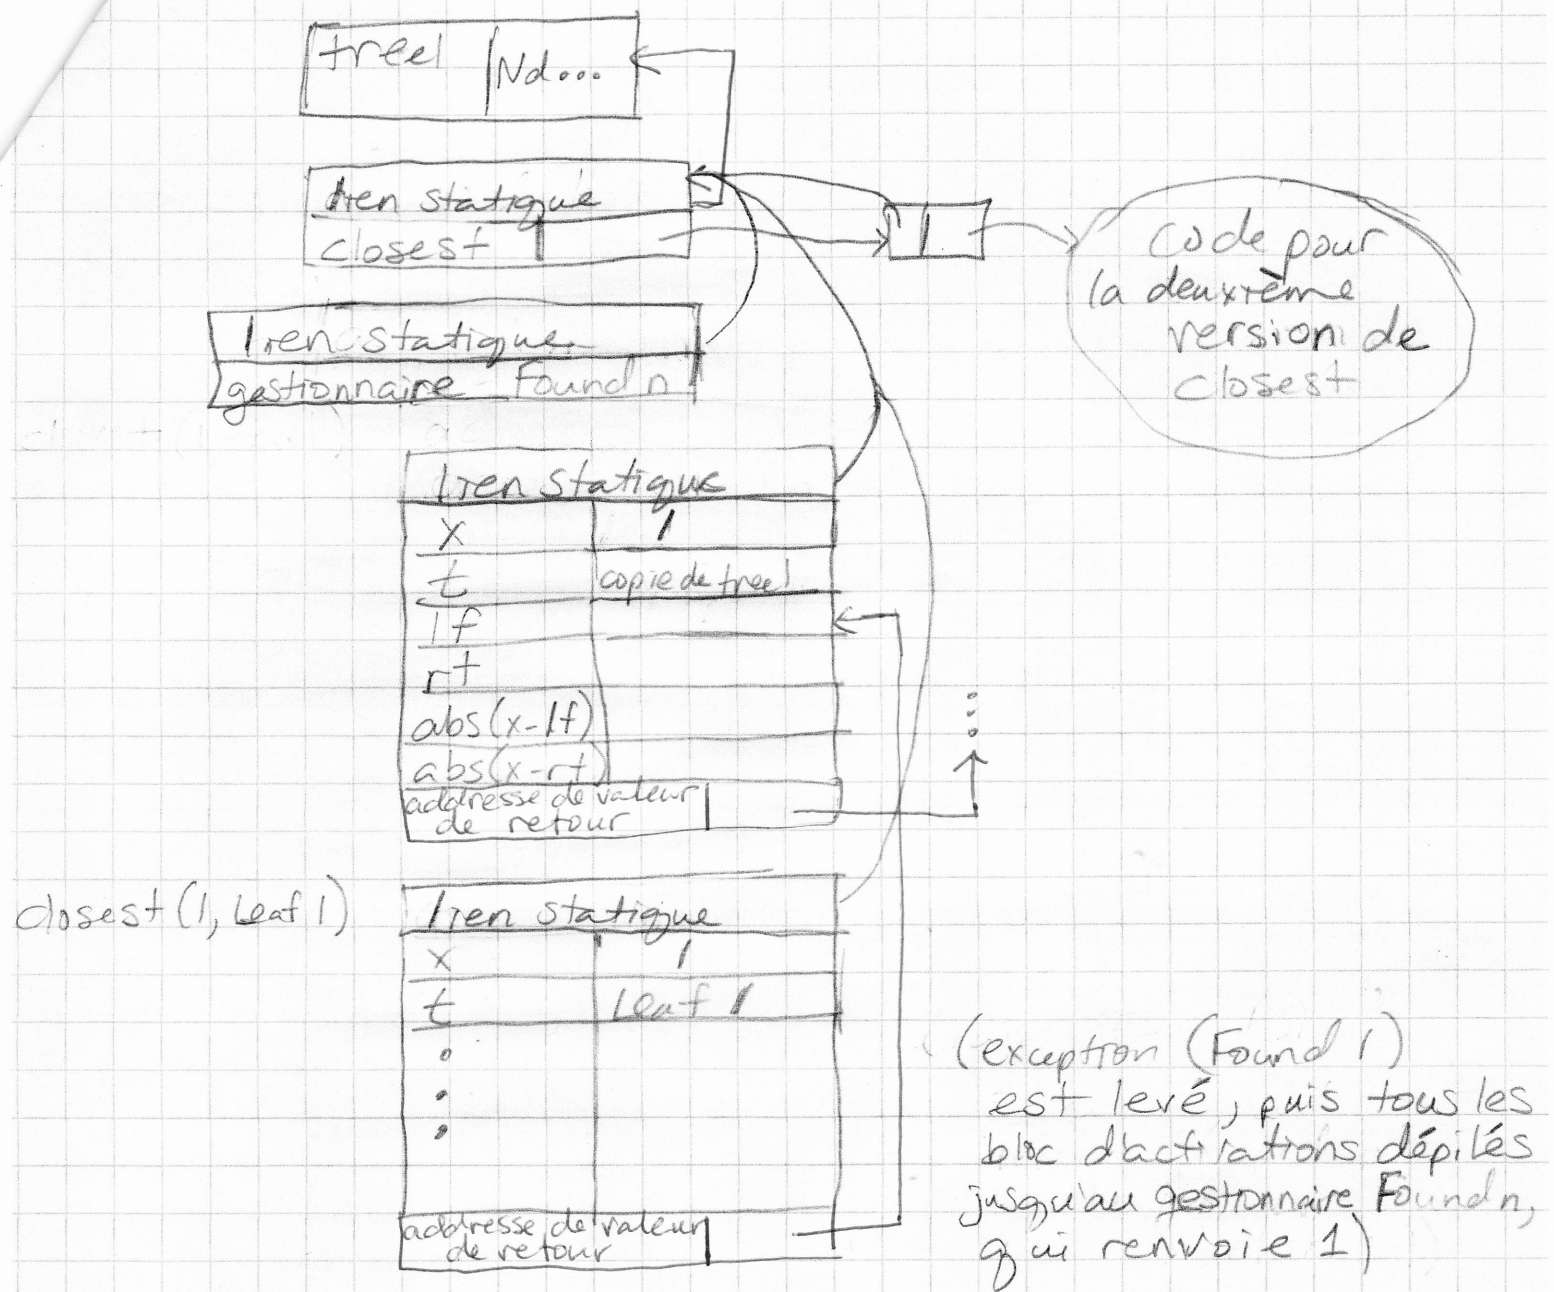 tree1 Nd...
lien statique
closest
code pour
la deuxième
version de
closest
lien statique
gestionnaire Found n
lien statique
x 1
t copie de tree1
lf
rt
abs(x-lf)
abs(x-rt)
addresse de valeur
de retour
closest(1, Leaf 1)
lien statique
x 1
t Leaf 1
(exception (Found 1)
est levé, puis tous les
bloc d'activations dépilés
jusqu'au gestionnaire Found n,
qui renvoie 1)
addresse de valeur
de retour